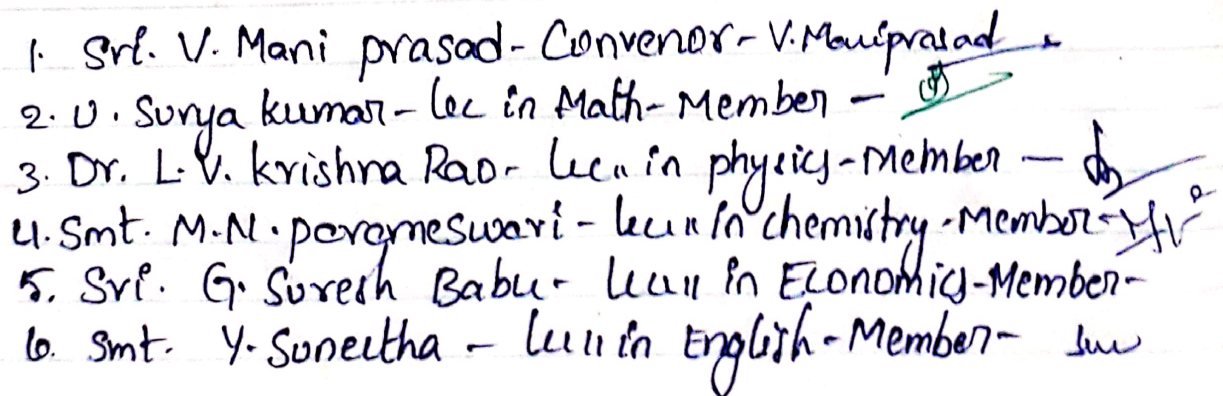 1. Sri. V. Mani prasad - Convenor - V. Maniprasad
2. U. Surya kumar - lec in Math - Member -
3. Dr. L. V. krishna Rao - Lec in physics - Member -
4. Smt. M. N. parameswari - lec in chemistry - Member -
5. Sri. G. Suresh Babu - lec in Economics - Member -
6. Smt. Y. Suneetha - lec in English - Member -